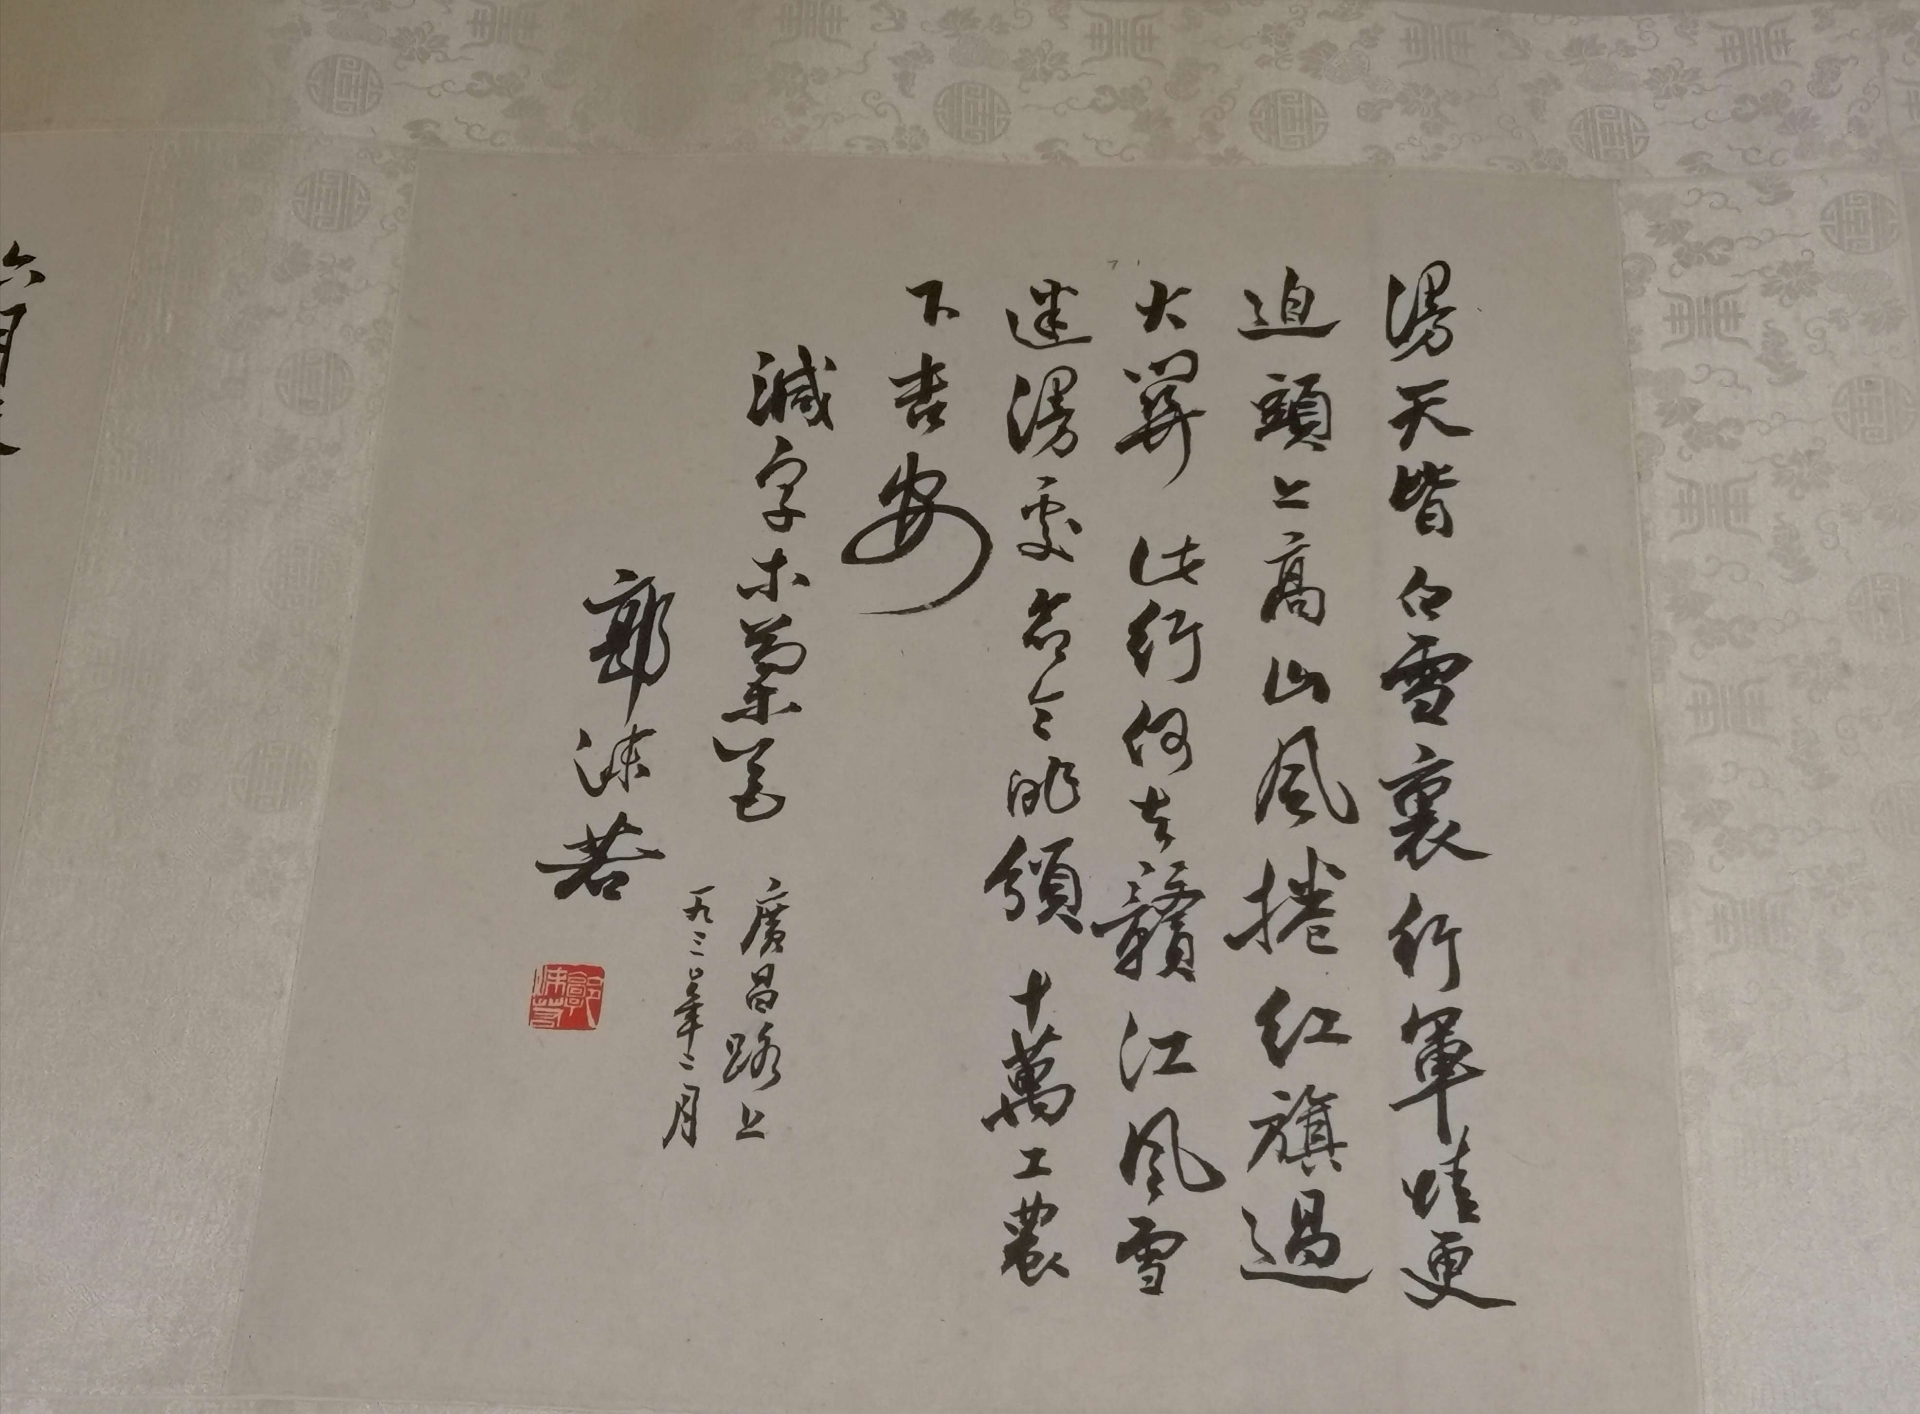 漫天皆白雪裏行軍情更
迫頭上高山風捲紅旗過
大關 此行何去贛江風雪
迷漫處命令昨頒 十萬工農
下吉安
減字木蘭花 廣昌路上
一九三〇年二月
郭沫若
郭沫若
六月